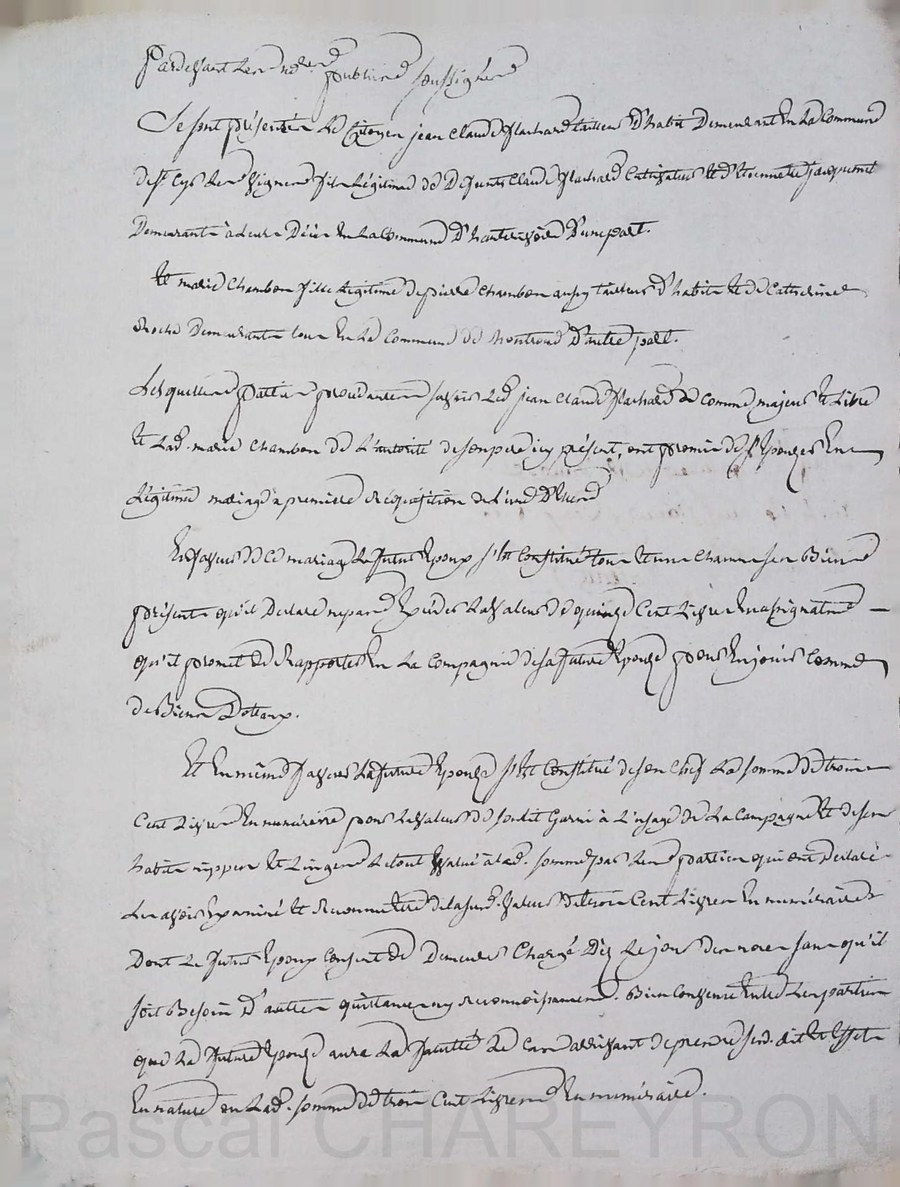 Pardevant les no.res publics soussignés
Se sont présentés le Citoyen jean Claude flachard tailleur d'habit Demeurant En la Commune
de st Cyr les vignes fils légitime de Defunts Claude flachard Cultivateur et d'Etiennette jacquemet
Demeurants à leurs Décès En la Commune d'hauterivoire d'une part.
Et marie Chambon fille légitime de pierre Chambon aussy tailleur d'habits et de Catherine
roche Demeurants tous En la Commune de d'autre part.
Lesquelles parties procedantes sçavoir led. jean Claude flachard comme majeur et libre
et lad. marie Chambon de l'autorité de son pere icy présent, ont promis de s'Epouser En
légitime mariage à premiere réquisition de l'une d'Elles
En faveur de Ce mariage le futur Epoux s'est Constitué tous et uns Chacuns ses Biens
présents qu'il Declare ne pas Exceder la valeur de quinze Cent livres En assignats
qu'il promet de rapporter En la Compagnie de sa future Epouse pour En jouir Comme
de Biens Dotaux.
Et En même faveur la future Epouse s'est Constitué de son Chef la somme de trois
Cent livres En numéraire pour la valeur de sondit Garni à l'usage de la Campagne et de ses
habits nippes et linges le tout Evalué à lad. somme par les parties qui ont déclaré
les avoir Examiné et reconnu Etre de lasusd. valeur de trois Cent livres En numéraire
Dont le futur Epoux Consent de Demeurer Chargé Dès le jour des noces sans qu'il
soit Besoin d'autres quittances ny reconnoissances. Bien Convenu Entre les parties
que la future Epouse aura la faculté le Cas arrivant de prendre sesd. lit et Effets
En nature ou lad. somme de trois Cent livres En numéraire.
Pascal CHAREYRON